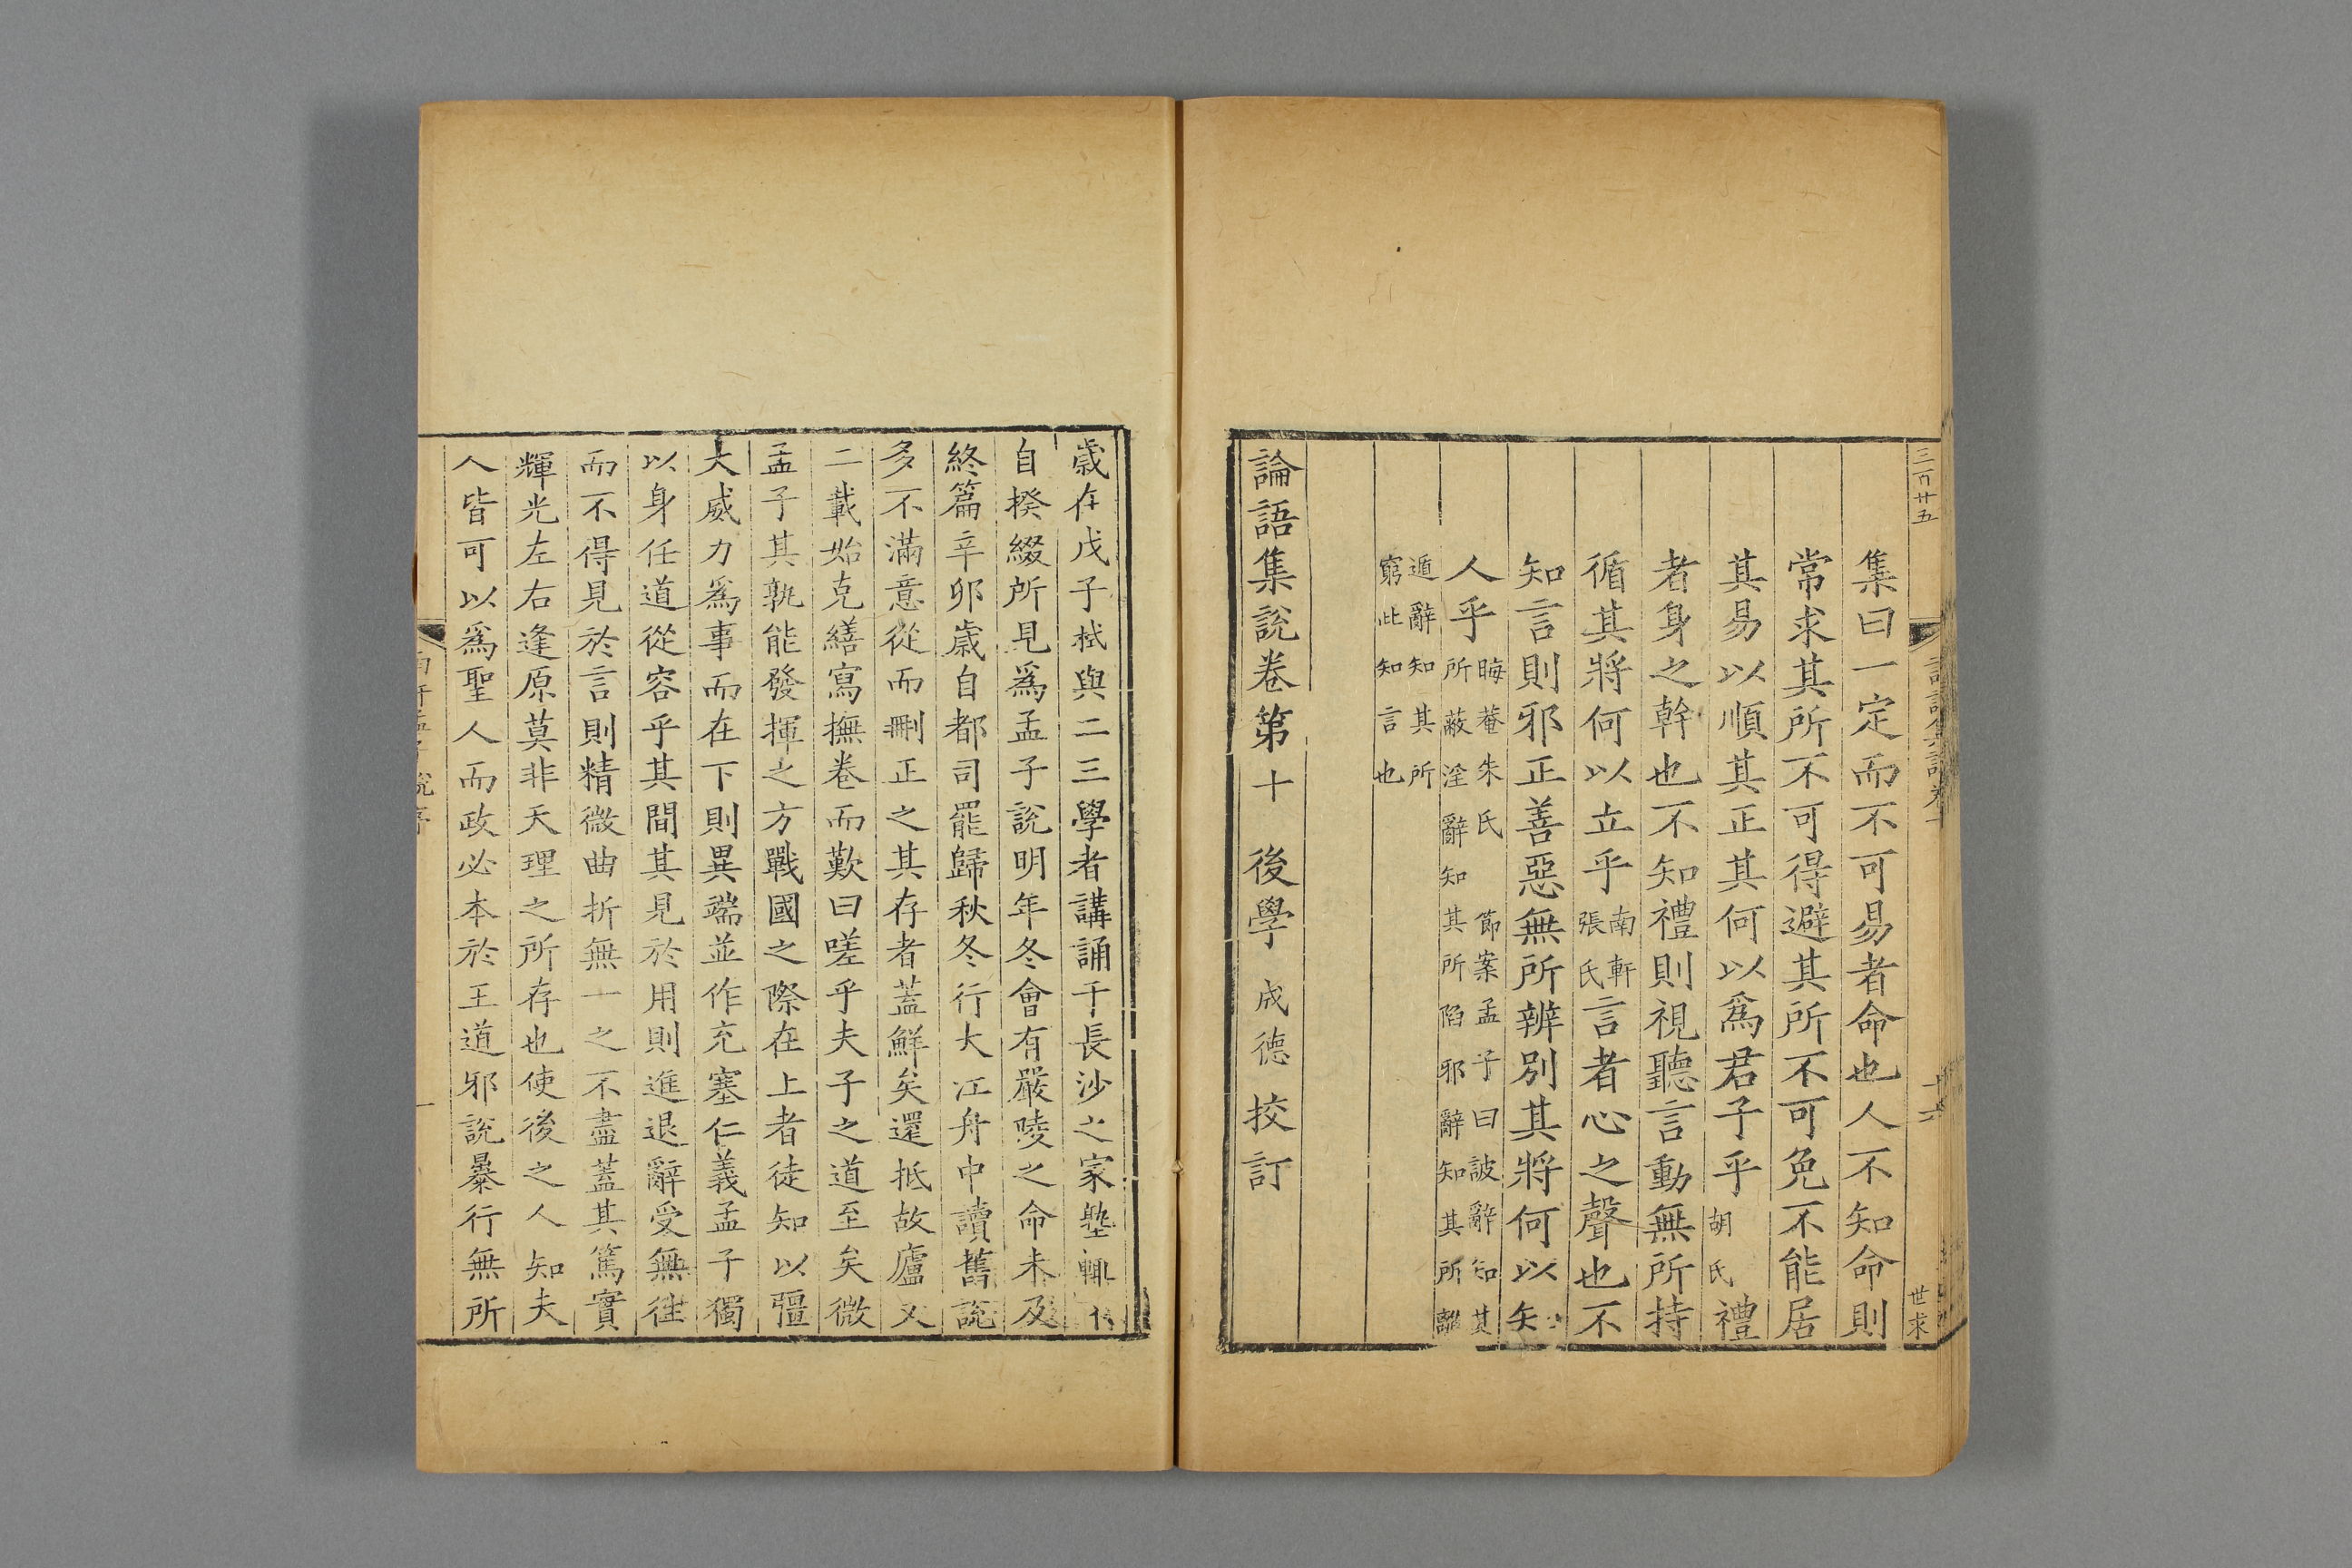 三百廿五
世求
集曰一定而不可易者命也人不知命則
常求其所不可得避其所不可免不能居
其易以順其正其何以爲君子乎胡氏禮
者身之幹也不知禮則視聽言動無所持
循其將何以立乎南軒張氏言者心之聲也不
知言則邪正善惡無所辨別其將何以
人乎晦菴朱氏 節案孟子曰詖辭知其
所蔽淫辭知其所陷邪辭知其所離
遁辭知其所
窮此知言也
論語集說卷第十 後學 成德 挍訂
歲在戊子栻與二三學者講誦于長沙之家塾輒不
自揆綴所見爲孟子說明年冬會有嚴陵之命未及
終篇辛卯歲自都司罷歸秋冬行大江舟中讀舊說
多不滿意從而刪正之其存者蓋鮮矣還抵故廬又
二載始克繕寫撫卷而歎曰嗟乎夫子之道至矣微
孟子其孰能發揮之方戰國之際在上者徒知以彊
大威力爲事而在下則異端並作充塞仁義孟子獨
以身任道從容乎其間其見於用則進退辭受無往
而不得見於言則精微曲折無一之不盡蓋其篤實
輝光左右逢原莫非天理之所存也使後之人知夫
人皆可以爲聖人而政必本於王道邪說暴行無所